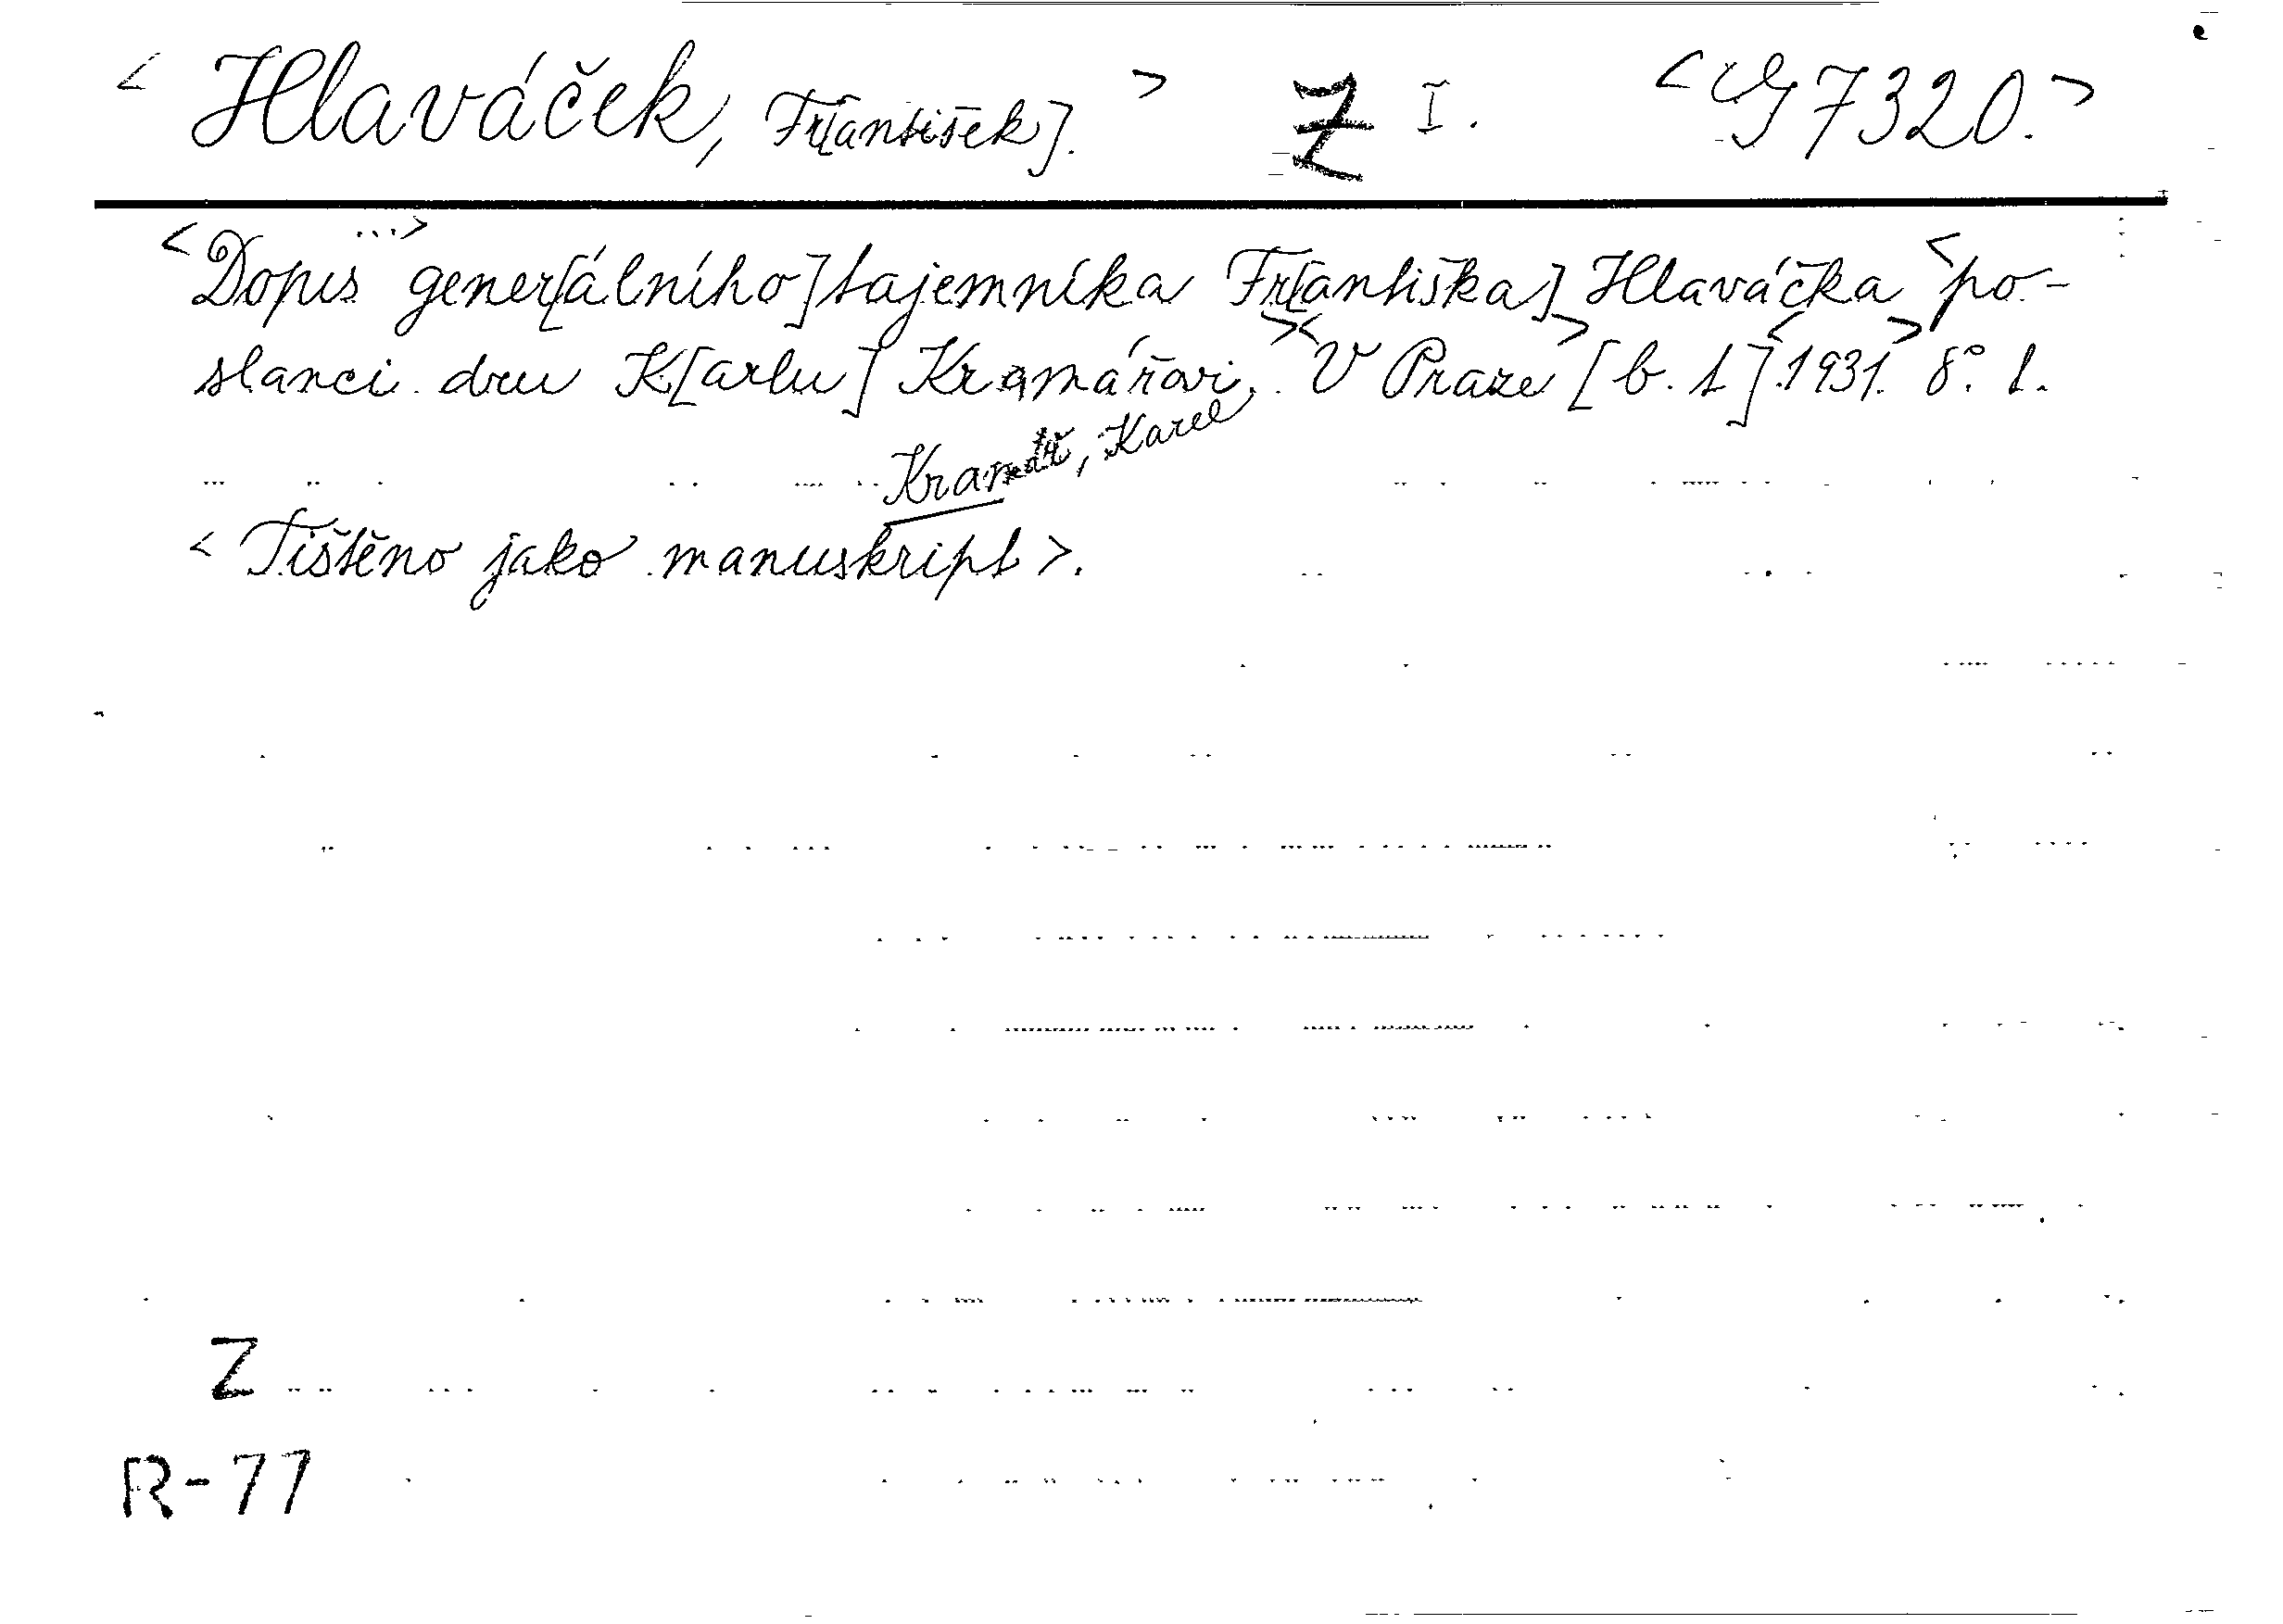 < Hlaváček, Fr[antišek]. > Z I. <G 7320.>
<Dopis ...> gener[álního] tajemníka Fr[antiška] Hlaváčka <po-
slanci dru K[arlu] Kramářovi.>< V Praze> [b. t.] <1931.> 8°. l.
Kramář, Karel
< Tištěno jako manuskript >.
Z
R-77